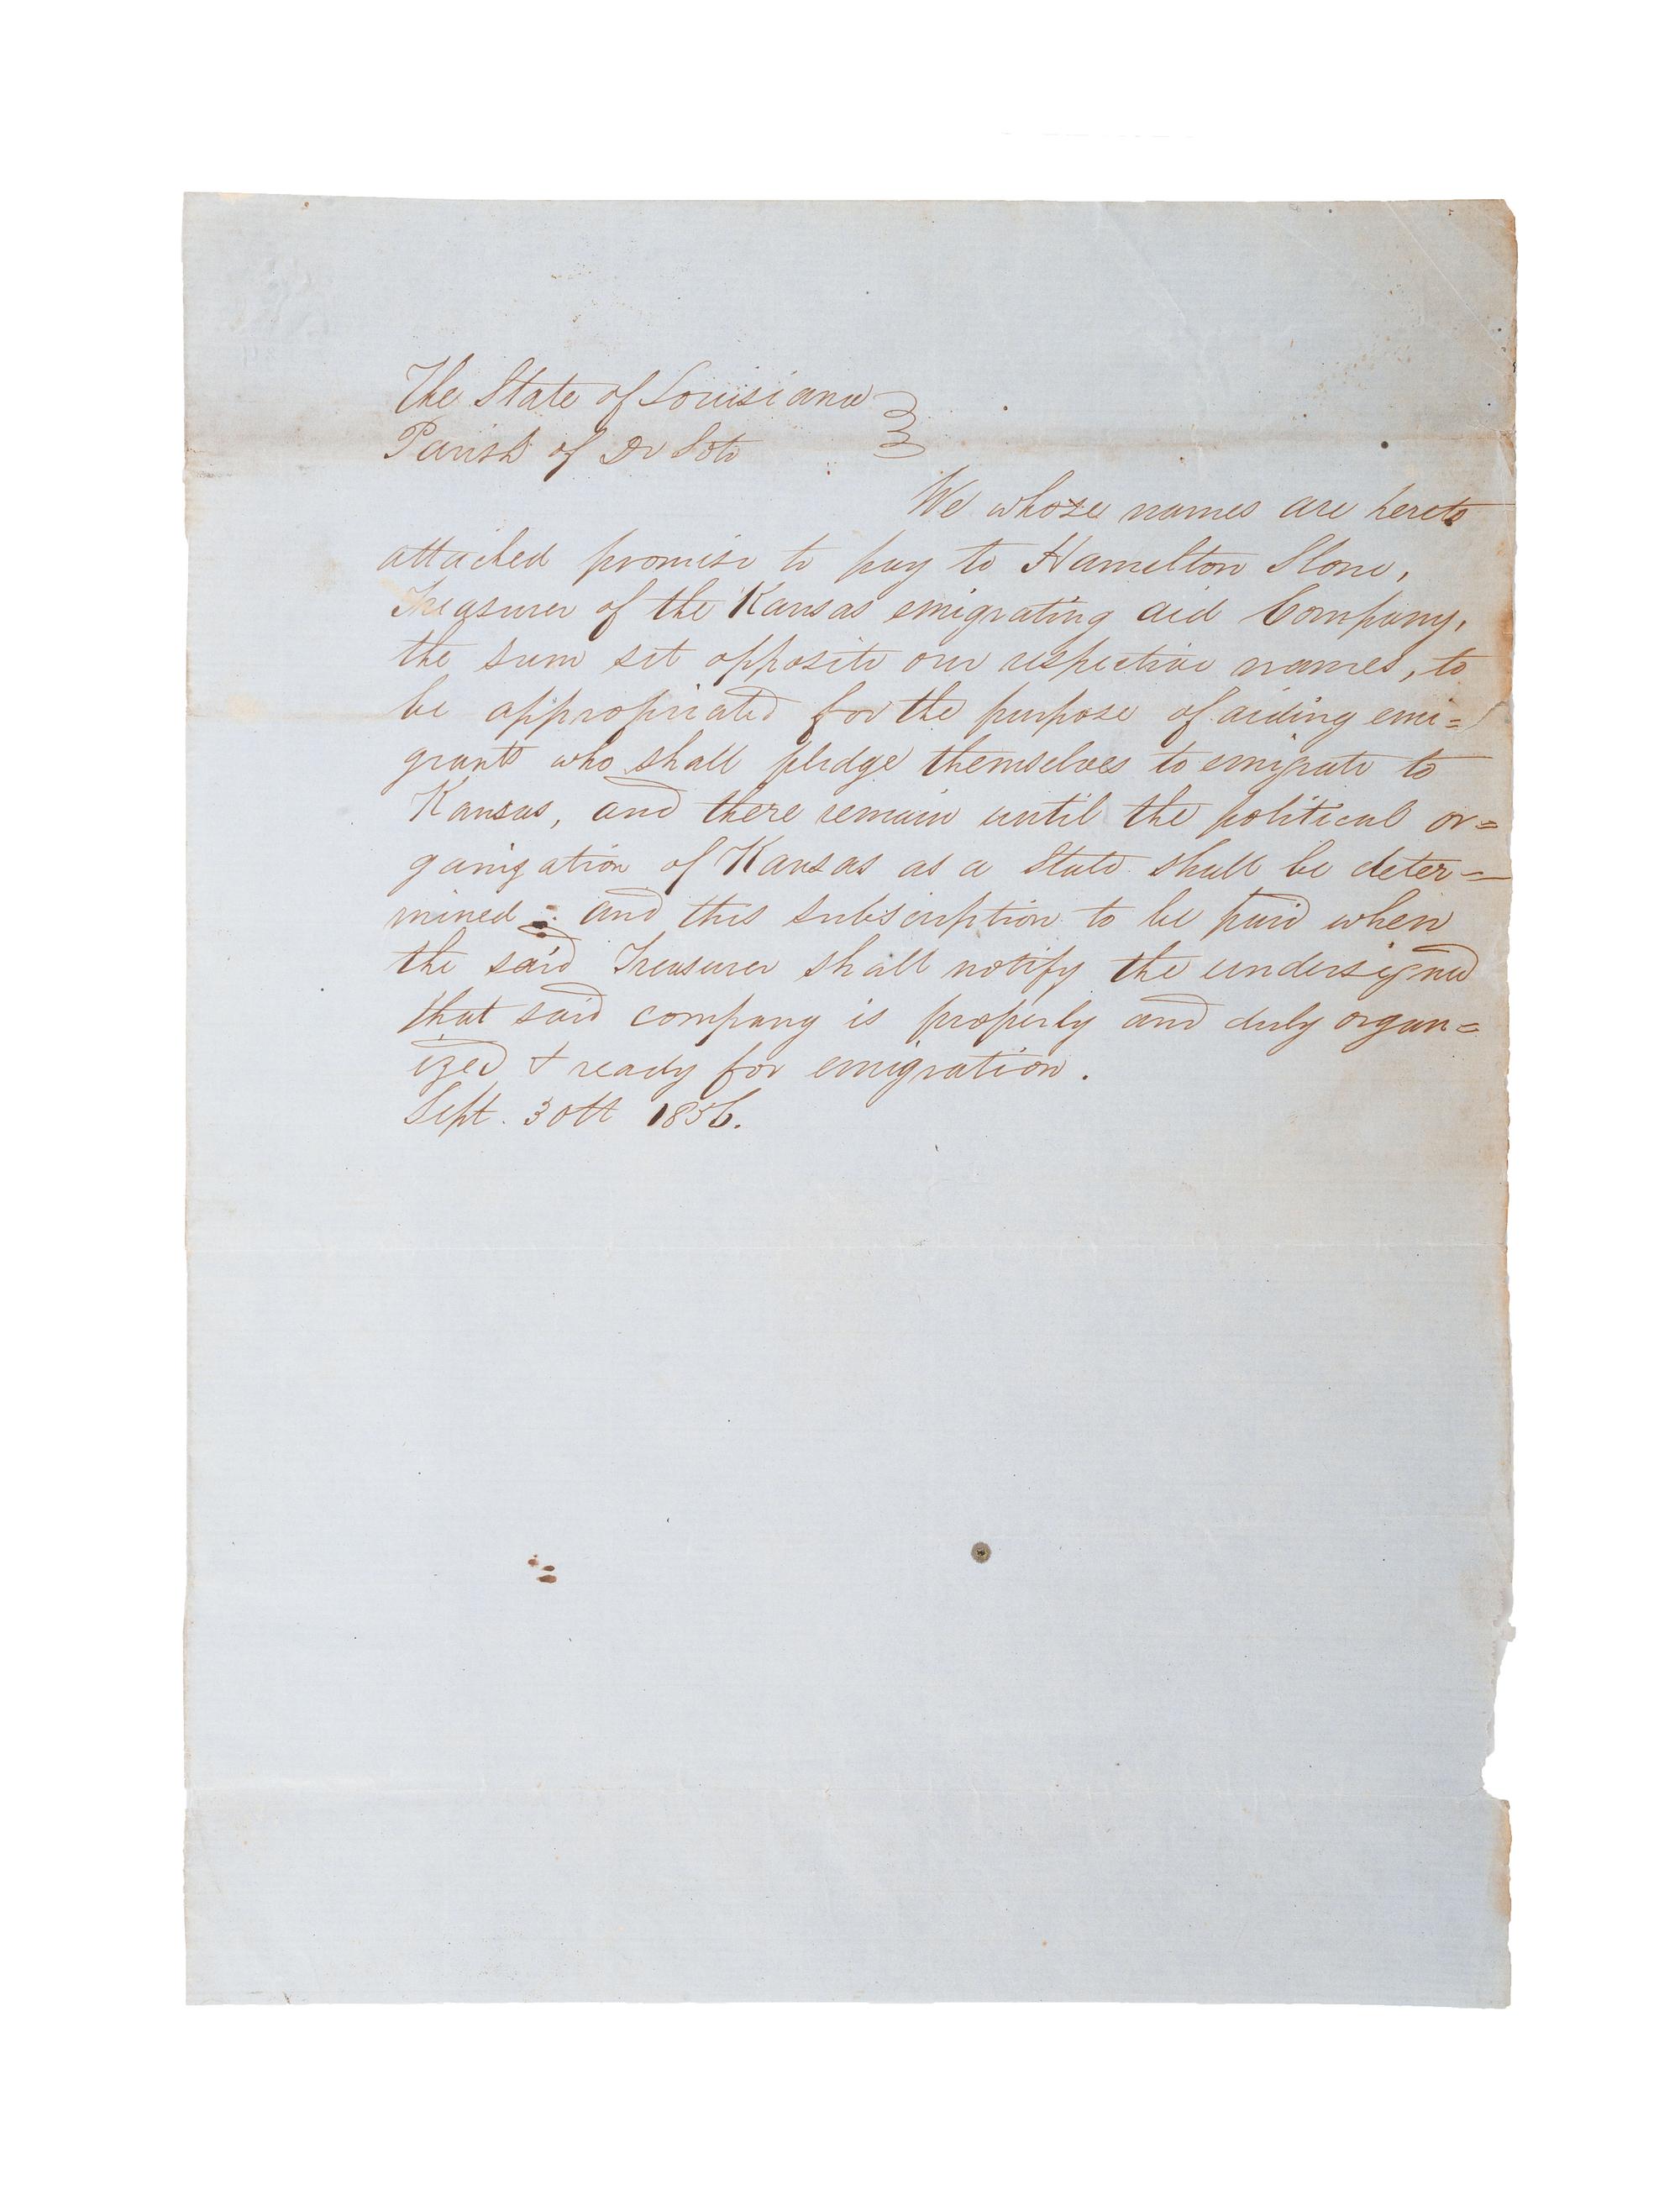 The State of Louisiana
Parish of De Soto
We whose names are hereto
attached promise to pay to Hamelton Stone,
Treasurer of the Kansas emigrating aid Company,
the sum set opposite our respective names, to
be appropriated for the purpose of aiding emi=
grants who shall pledge themselves to emigrate to
Kansas, and there remain until the political or=
ganization of Kansas as a State shall be deter=
mined; and this subscription to be paid when
the said Treasurer shall notify the undersigned
that said company is properly and duly organ=
ized & ready for emigration.
Sept. 30th 1856.